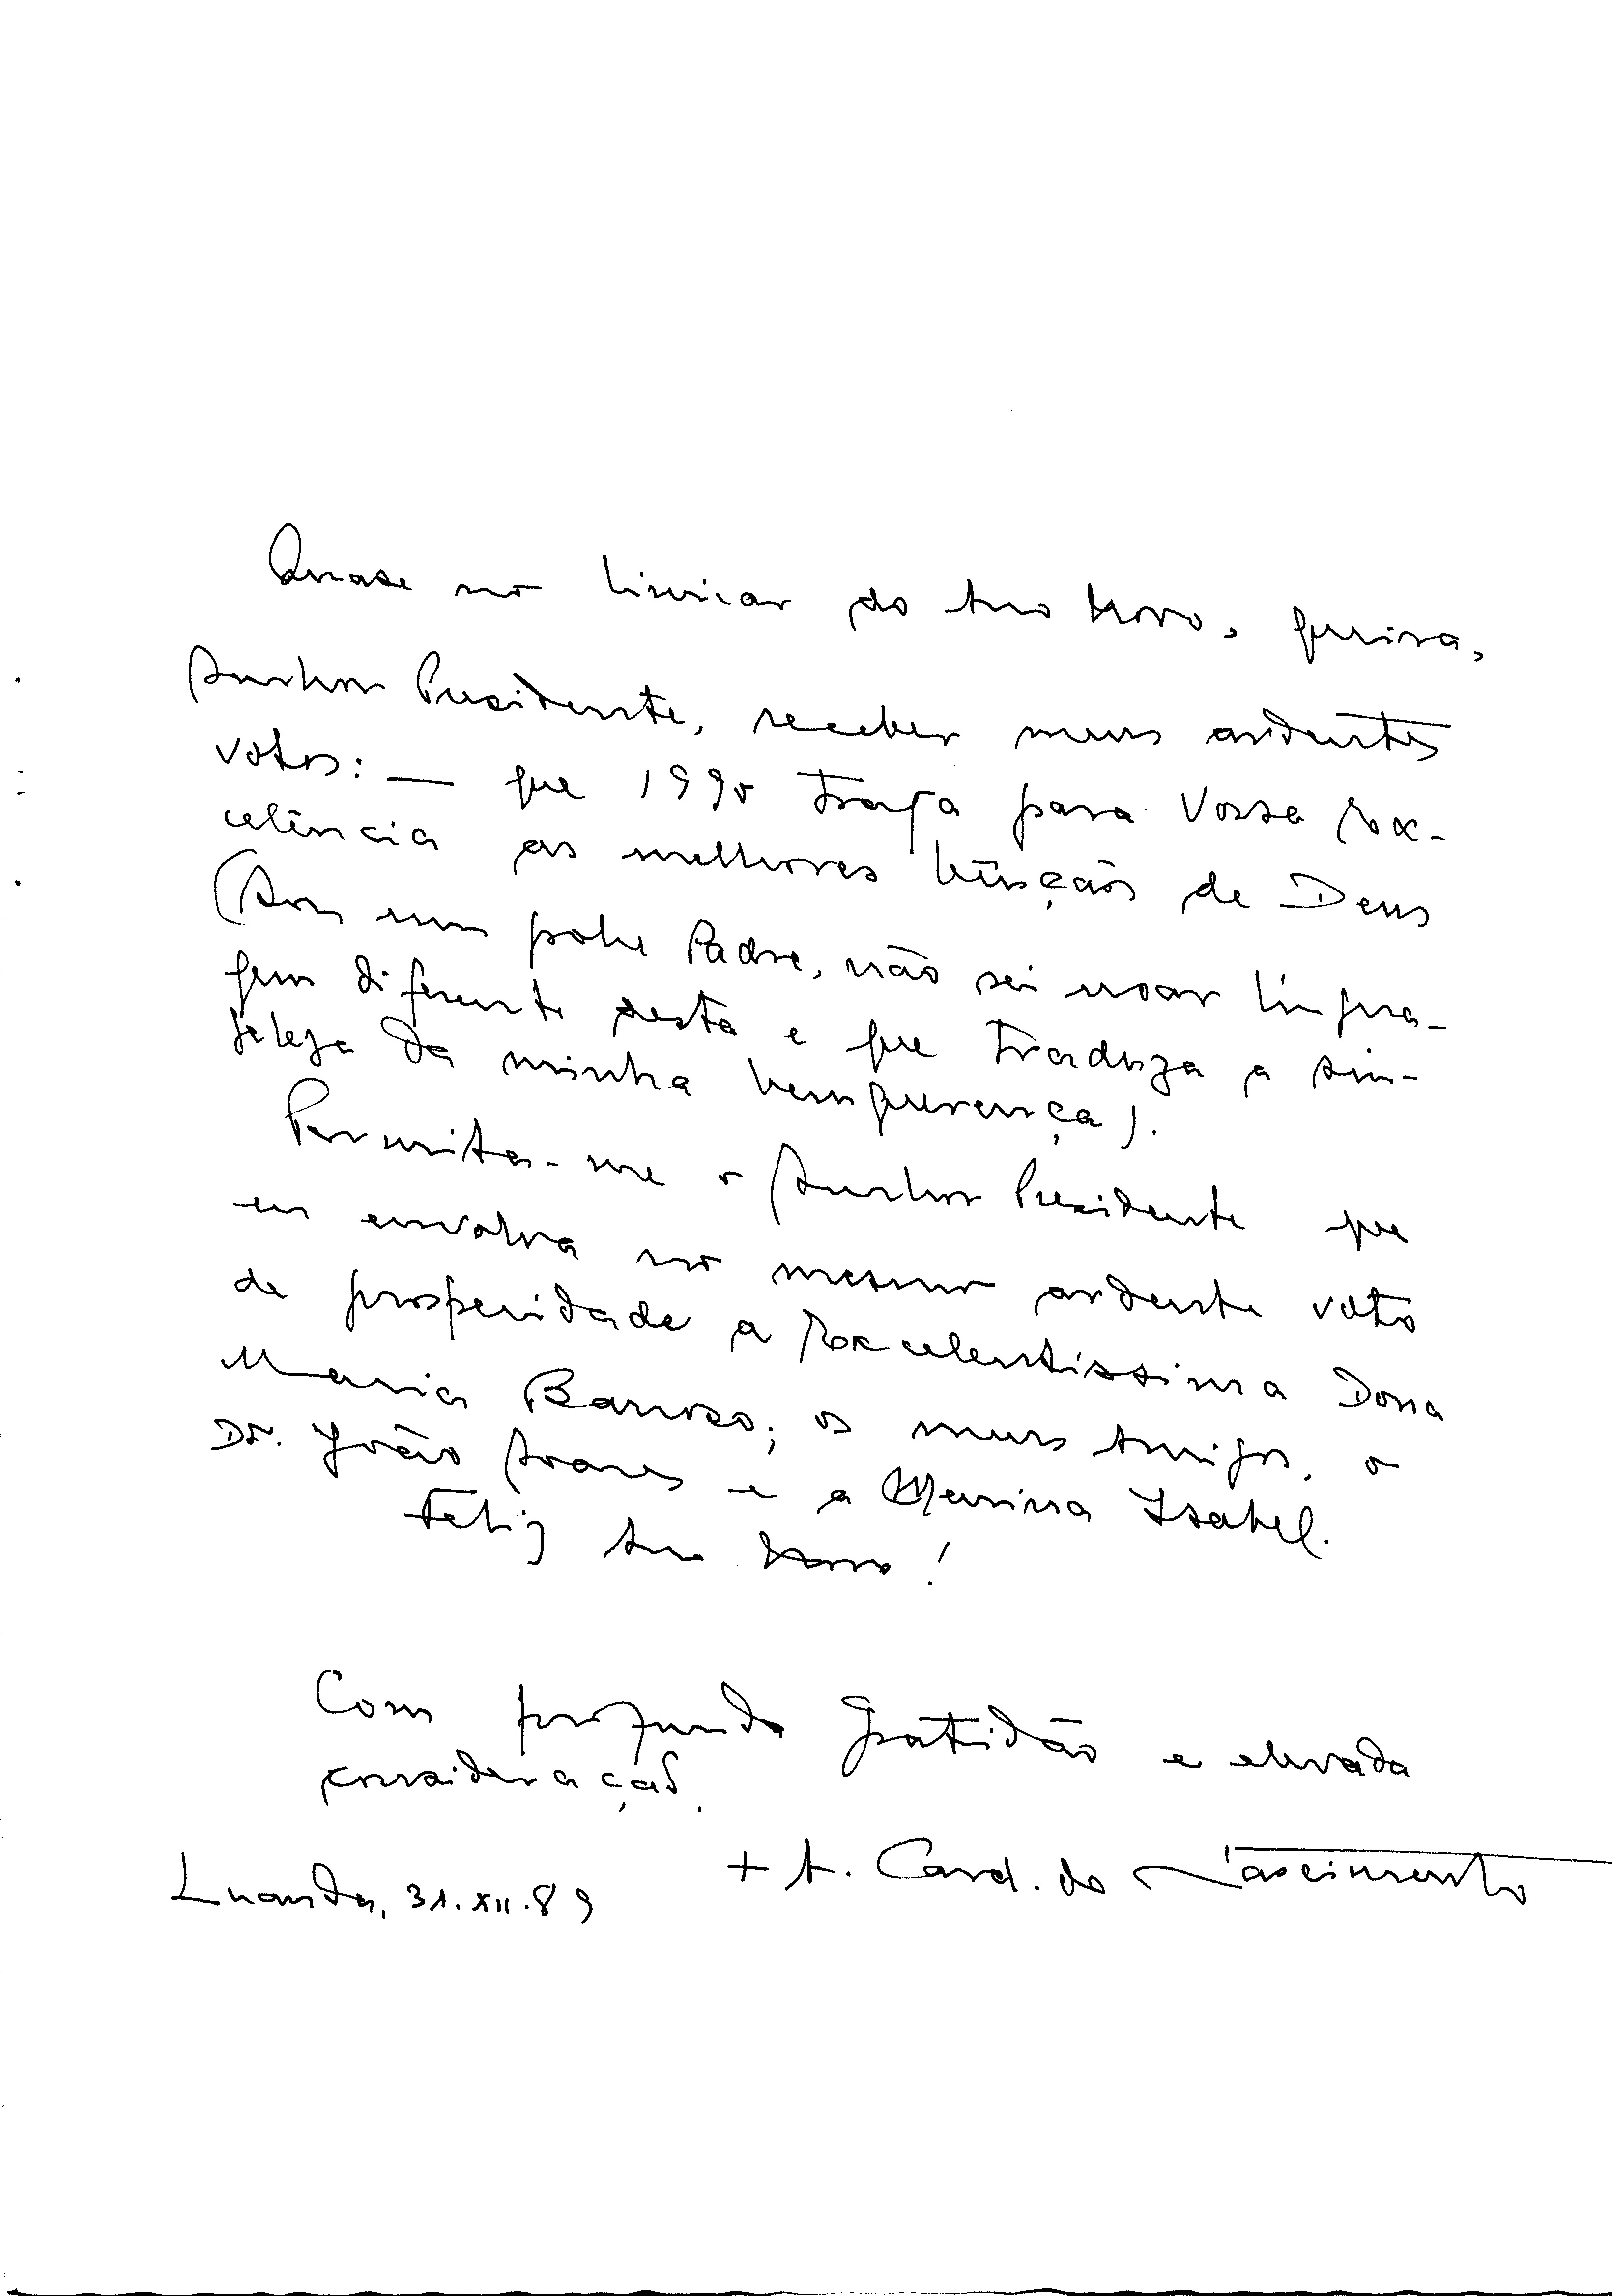 Quase no limiar do Ano Novo, queira,
Senhor Presidente, receber meus ardentes
votos: — que 1990 traga para Vossa Ex-
celência as melhores bênçãos de Deus
(Sou um pobre Padre, não sei usar lingua-
gem diferente desta e que traduza a sin-
geleza da minha bemquerença).
Permita-me o Senhor Presidente que
eu envolva no mesmo ardente voto
de prosperidade a Excelentíssima Dona
Maria Barroso; os meus Amigos, o
Dr. João Soares e a Menina Isabel.
Feliz Ano Novo!
Com profunda gratidão e elevada
consideração.
+ A. Card. do Nascimento
Luanda, 31.XII.89